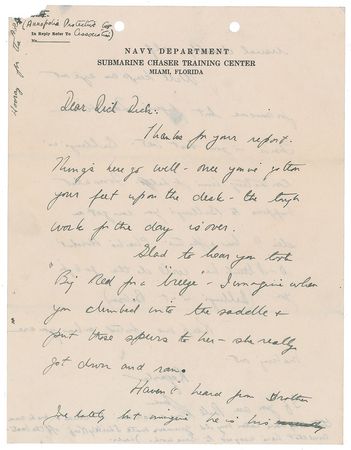 (Annapolis Protective Co.
In Reply Refer To Association)
No.
Hooray for the
NAVY DEPARTMENT
SUBMARINE CHASER TRAINING CENTER
MIAMI, FLORIDA
Dear Dict Dick:
Thanks for your report.
Things here go well - once you've gotten
your feet upon the desk - the tough
work for the day is over.
Glad to hear you took
"Big Red for a breeze" - I imagine when
you climbed into the saddle &
put those spurs to her - she really
got down and ran.
Haven't heard from Brother
lately but imagine he is